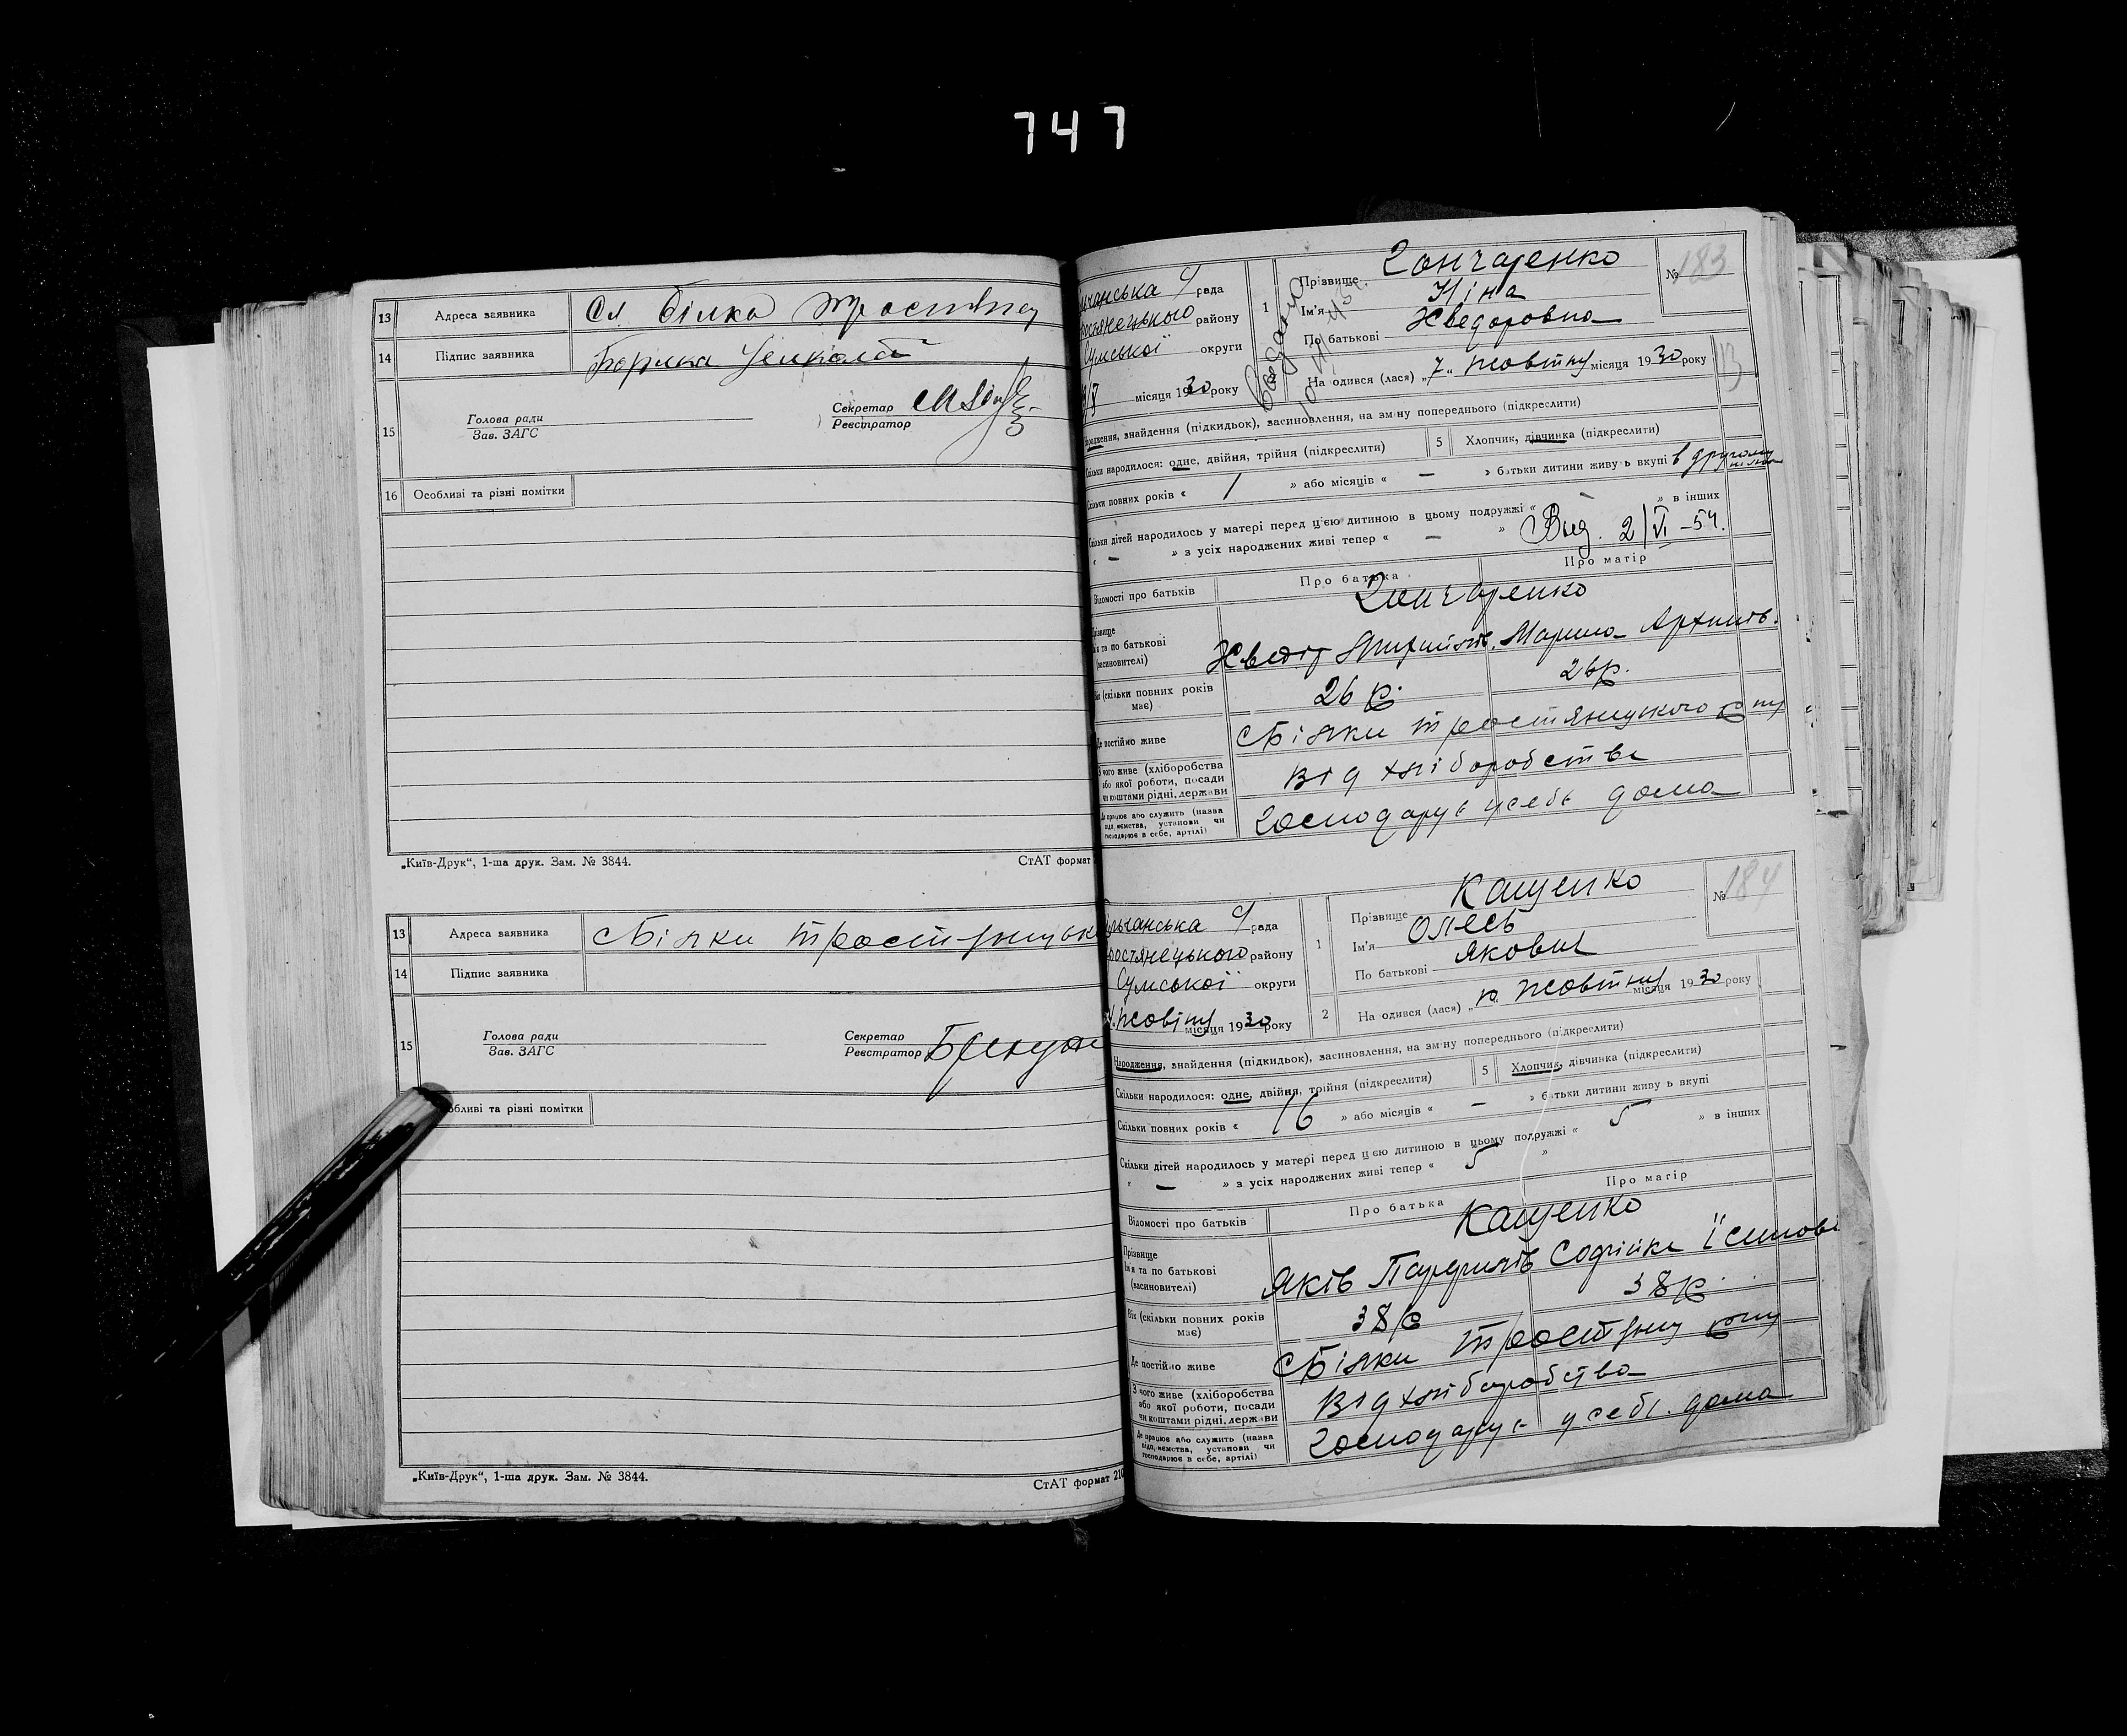 747
13 Адреса заявника Сл Білка Тростянец
14 Підпис заявника
15 Голова ради Секретар
Зав. ЗАГС Реєстратор
16 Особливі та різні помітки
„Київ-Друк“, 1-ша друк. Зам. № 3844. СтАТ формат
13 Адреса заявника с Білки Тростянецьк
14 Підпис заявника
15 Голова ради Секретар
Зав. ЗАГС Реєстратор
обливі та різні помітки
„Київ-Друк“, 1-ша друк. Зам. № 3844. СтАТ формат 210
рада
району
Сумської округи
місяця 1930 року
1 Прізвище Гончаренко № 183
Ім'я Ніна
По батькові Хведоровна
На одився (лася) „7„ жовтня місяця 1930 року
Видано
13
народження, знайдення (підкидьок), засиновлення, на зміну попереднього (підкреслити)
Скільки народилося: одне, двійня, трійня (підкреслити) 5 Хлопчик, дівчинка (підкреслити)
Скільки повних років « 1 » або місяців « — » батьки дитини живуть вкупі в другому
Скільки дітей народилось у матері перед цією дитиною в цьому подружжі « » в інших
« — » з усіх народжених живі тепер « — »
Вид. 2/VI-54.
Відомості про батьків Про батька Про матір
Гончаренко
Прізвище
ім'я та по батькові
(засиновителі)
Хведір Марина Архипів.
Вік (скільки повних років має) 26 р. 26 р.
Де постійно живе с Білки Тростянецького р ну
З чого живе (хліборобства
або якої роботи, посади
чи коштами рідні, держави
від хліборобства
Де працює або служить (назва
підприємства, установи чи
господарює в себе, артілі)
Господарує у себе дома
рада
Тростянецького району
Сумської округи
жовтня місяця 1930 року
1 Прізвище Кащенко № 184
Ім'я Олесь
По батькові Якович
2 На одився (лася) „10. жовтня місяця 1930 року
Народження, знайдення (підкидьок), засиновлення, на зміну попереднього (підкреслити)
Скільки народилося: одне, двійня, трійня (підкреслити) 5 Хлопчик, дівчинка (підкреслити)
Скільки повних років « 16 » або місяців « — » батьки дитини живуть вкупі
Скільки дітей народилось у матері перед цією дитиною в цьому подружжі « 5 » в інших
« — » з усіх народжених живі тепер « 5 »
Відомості про батьків Про батька Про матір
Кащенко
Прізвище
Ім'я та по батькові
(засиновителі)
Яків Софійка
Вік (скільки повних років має) 38 р 38 р.
Де постійно живе с Білки Тростянц р ну
З чого живе (хліборобства
або якої роботи, посади
чи коштами рідні, держави
від хліборобства
Де працює або служить (назва
підприємства, установи чи
господарює в себе, артілі)
Господарує у себе дома